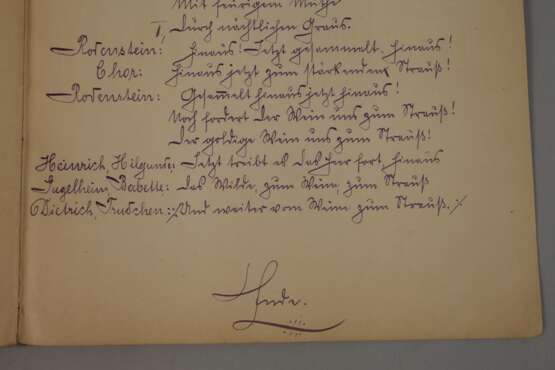 Mit feurigem Muthe
I, Durch nächtlichen Graus.
Rodenstein: Hinaus! Jetzt gesammelt. Hinaus!
Chor: Hinaus jetzt zum stärkenden Strauß!
Rodenstein: Gesammelt hinaus jetzt hinaus!
Noch fordert der Wein uns zum Strauß!
Der goldige Wein uns zum Strauß!
Heinrich, Hilgunde, Jetzt treibt es das Heer fort, hinaus
Ingelheim, Babette: Das Wilde, zum Wein, zum Strauß
Dietrich, Trudchen: :/: Und weiter vom Weine zum Strauß. :/:
Ende.